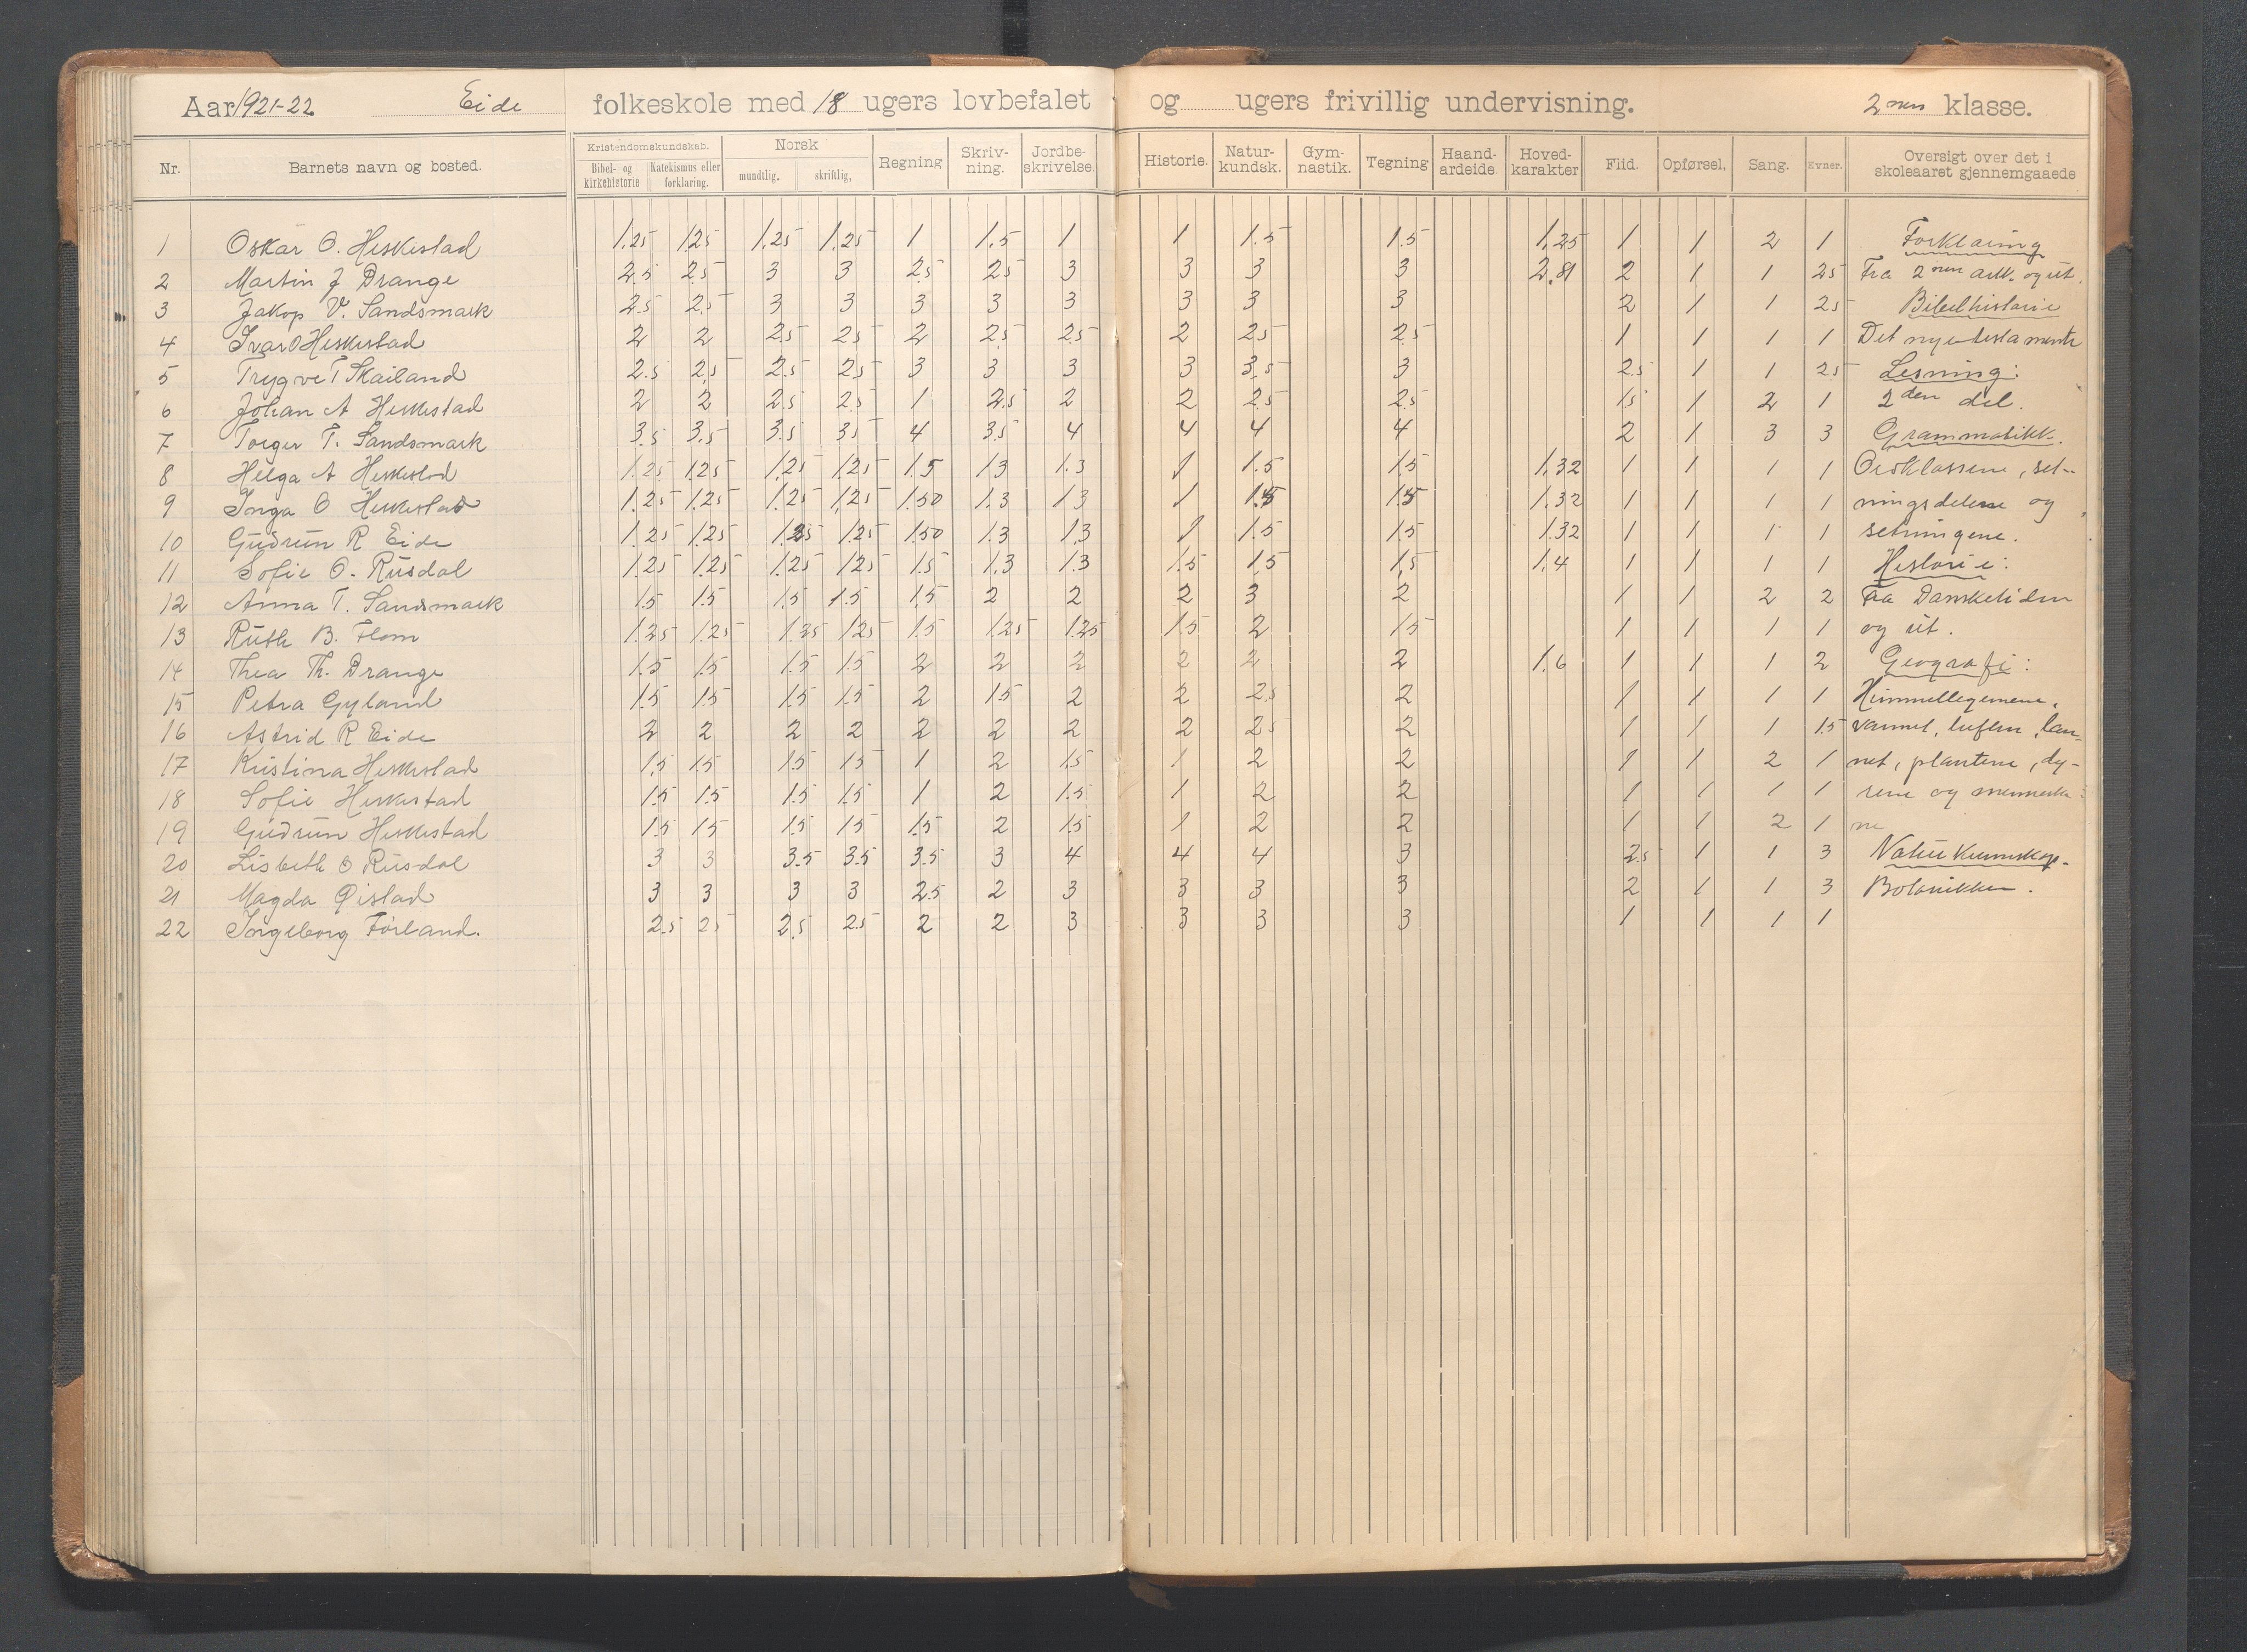 Aar 1921-22 Eide folkeskole med 18 ugers lovbefalet og ugers frivillig undervisning. 2nen klasse.
Nr. Barnets navn og bosted. Kristendomskundskab. Bibel- og kirkehistorie Katekismus eller forklaring. Norsk mundtlig. skriftlig, Regning Skriv-ning. Jordbe-skrivelse. Historie. Natur-kundsk. Gym-nastik. Tegning Haand-ardeide. Hoved-karakter Flid. Opførsel, Sang. Evner. Oversigt over det i skoleaaret gjennemgaaede
1 Oskar O. Heskestad 1.25 1.25 1.25 1.25 1 1.5 1 1 1.5 1.5 1.25 1 1 2 1 Forklaring
2 Martin J Drange 2.5 2.5 3 3 2.5 2.5 3 3 3 3 2.81 2 1 1 2.5 Fra 2nen artk. og ut.
3 Jakop V. Sandsmark 2.5 2.5 3 3 3 3 3 3 3 3 2 1 1 2.5 Bibelhistorie
4 Ivar O Heskestad 2 2 2.5 2.5 2 2.5 2.5 2 2.5 2.5 1 1 1 1 Det nye testamente
5 Trygve T Skailand 2.5 2.5 2.5 2.5 3 3 3 3 3.5 3 2.5 1 1 2.5 Lesning:
6 Johan A Heskestad 2 2 2.5 2.5 1 2.5 2 2 2.5 2.5 1.5 1 2 1 2den del.
7 Torger T. Sandsmark 3.5 3.5 3.5 3.5 4 3.5 4 4 4 4 2 1 3 3 Grammatikk.
8 Helga A Heskestad 1.25 1.25 1.25 1.25 1.5 1.3 1.3 1 1.5 1.5 1.32 1 1 1 1 Ordklassene, set-
9 Inga O Heskestad 1.25 1.25 1.25 1.25 1.50 1.3 1.3 1 1.5 1.5 1.32 1 1 1 1 ningsdelene og
10 Gudrun R Eide 1.25 1.25 1.25 1.25 1.50 1.3 1.3 1 1.5 1.5 1.32 1 1 1 1 setningene.
11 Sofie O. Rusdal 1.25 1.25 1.25 1.25 1.5 1.3 1.3 1.5 1.5 1.5 1.4 1 1 1 1 Historie:
12 Anna T. Sandsmark 1.5 1.5 1.5 1.5 1.5 2 2 2 3 2 1 1 2 2 Fra Dansketiden
13 Ruth B. Flom 1.25 1.25 1.25 1.25 1.5 1.25 1.25 1.5 2 1.5 1 1 1 1 og ut.
14 Thea Th. Drange 1.5 1.5 1.5 1.5 2 2 2 2 2 2 1.6 1 1 1 2 Geografi:
15 Petra Gyland 1.5 1.5 1.5 1.5 2 1.5 2 2 2.5 2 1 1 1 1 Himmellegemene,
16 Astrid R Eide 2 2 2 2 2 2 2 2 2.5 2 1 1 1 1.5 vannet, luften, lan-
17 Kristina Heskestad 1.5 1.5 1.5 1.5 1 2 1.5 1 2 2 1 1 2 1 net, plantene, dy-
18 Sofie Heskestad 1.5 1.5 1.5 1.5 1 2 1.5 1 2 2 1 1 1 1 rene og menneske-
19 Gudrun Heskestad 1.5 1.5 1.5 1.5 1.5 2 1.5 1 2 2 1 1 2 1 ne
20 Lisbeth O Rusdal 3 3 3.5 3.5 3.5 3 4 4 4 3 2.5 1 1 3 Naturkunnskap.
21 Magda Øistad 3 3 3 3 2.5 2 3 3 3 3 2 1 1 3 Botanikken.
22 Ingeborg Førland. 2.5 2.5 2.5 2.5 2 2 3 3 3 3 1 1 1 1